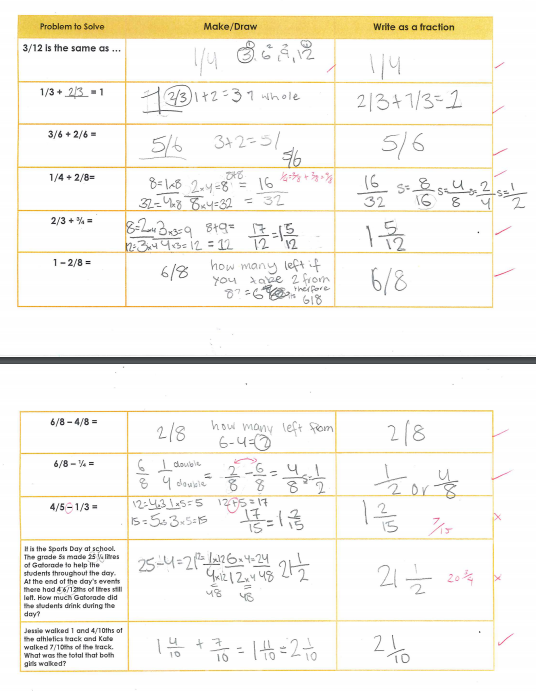 Problem to Solve Make/Draw Write as a fraction
3/12 is the same as … 1/4 3, 6, 9, 12 1/4
1/3 + 2/3 = 1 1 2/3 1+2=3 1 whole 2/3+1/3=1
3/6 + 2/6 = 5/6 3+2=5/ 5/6 5/6
1/4 + 2/8=
8=1x8 2x4=8 8+8 = 16
32=4x8 8x4=32 = 32
16/32 S= 8/16 S= 4/8 S= 2/4 S= 1/2
2/3 + ¾ =
8=2x4 3x3=9 8+9= 17/12 = 1 5/12
12=3x4 4x3=12 = 12
1 5/12
1 – 2/8 = 6/8 how many left if
you take 2 from
8? = 6 therefore
is 6/8
6/8
6/8 – 4/8 = 2/8 how many left from
6-4=2
2/8
6/8 – ¼ = 6/8 1/4 double double = 2/8 - 6/8 = 4/8 S= 1/2
1/2 or 4/8
4/5 – 1/3 =
12=4x3 1x5=5 12+5=17
15=5x3 3x5=15 17/15 = 1 2/15
1 2/15 7/15 x
It is the Sports Day at school.
The grade 5s made 25 ¼ litres
of Gatorade to help the
students throughout the day.
At the end of the day's events
there had 4 6/12ths of litres still
left. How much Gatorade did
the students drink during the
day?
25-4=21 1x12 6x4=24
4x12 12x4 48 21 1/2
48 48
21 1/2 20 3/4 x
Jessie walked 1 and 4/10ths of
the athletics track and Kate
walked 7/10ths of the track.
What was the total that both
girls walked?
1 4/10 + 7/10 = 1 11/10 = 2 1/10
2 1/10